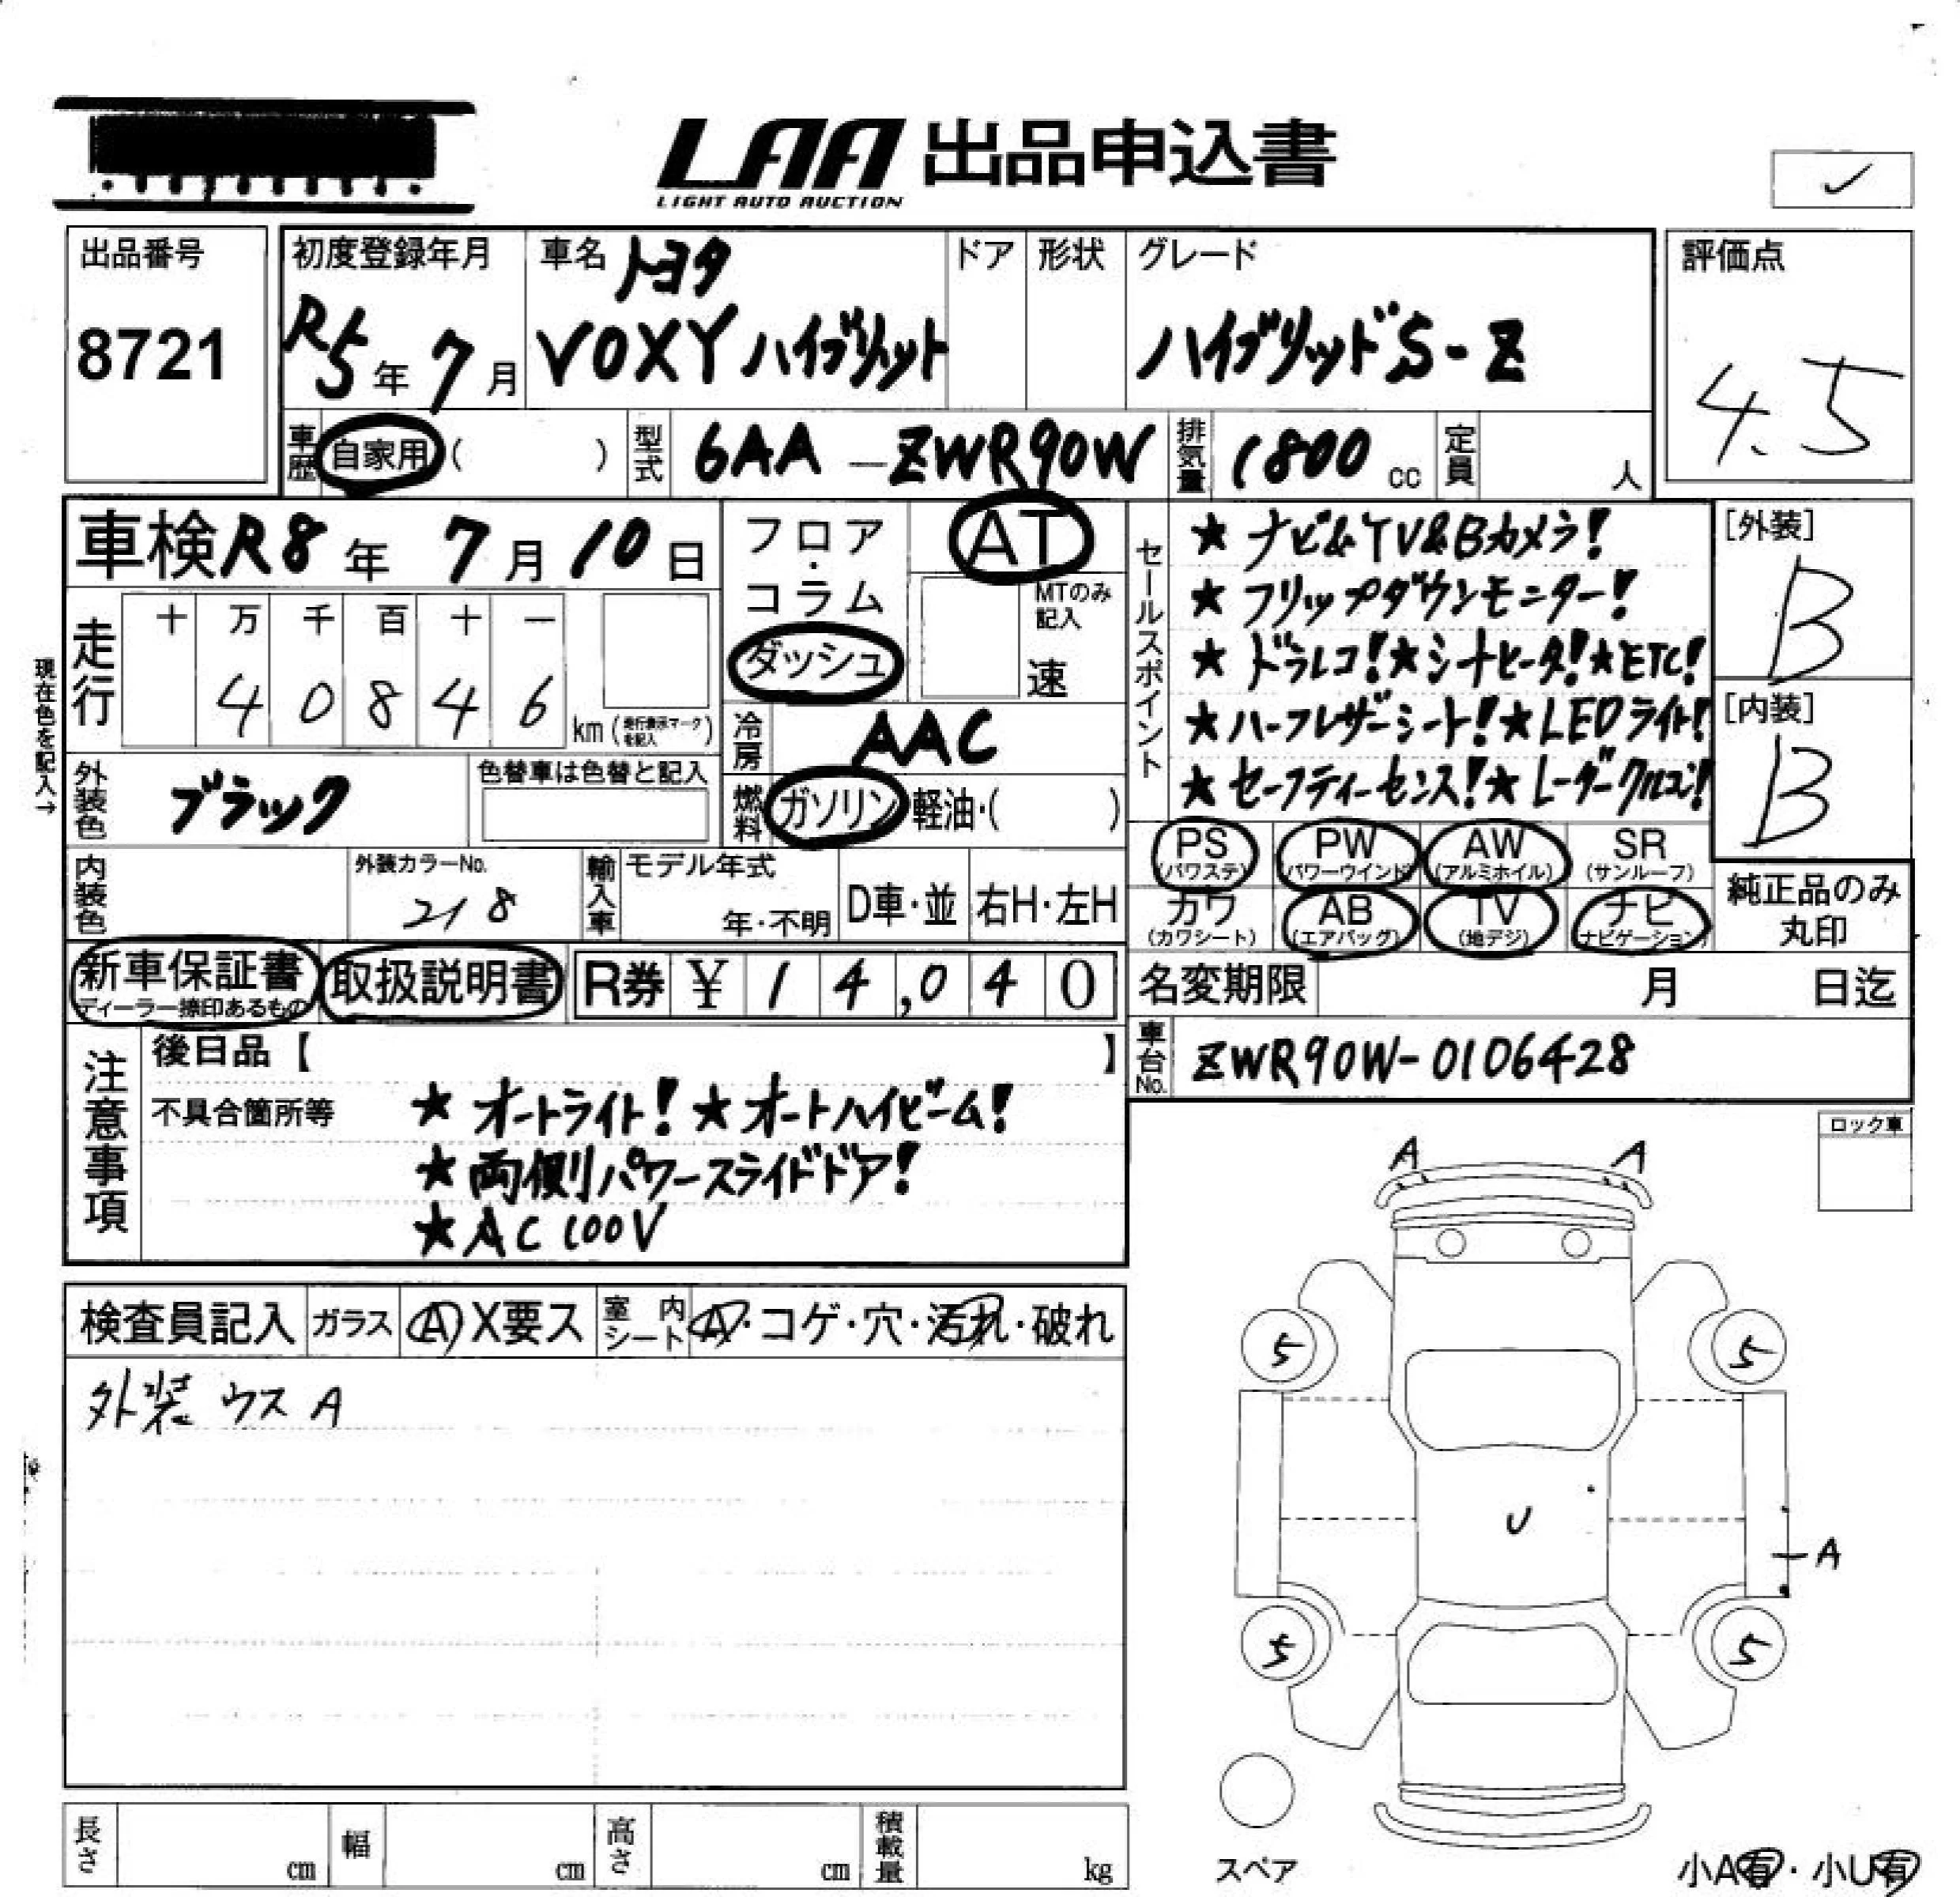 LAA 出品申込書
LIGHT AUTO AUCTION
レ
出品番号 8721
初度登録年月 R5年7月
車名 トヨタ
VOXY ハイブリット
ドア 形状
グレード
ハイブリッド S-Z
評価点
4.5
車歴 自家用 ( )
型式 6AA-ZWR90W
排気量 1800 cc
定員 人
車検 R8年 7月 10日
フロア・コラム ダッシュ
AT
MTのみ記入
速
セールスポイント
★ ナビ&TV&Bカメラ!
★ フリップダウンモニター!
★ ドラレコ!★シートヒータ!★ETC!
★ハーフレザーシート!★LEDライト!
★セーフティーセンス!★レーダークルコン!
[外装]
B
[内装]
B
現在色を記入→
走行
十 万 千 百 十 一
4 0 8 4 6 km (走行表示マークを記入)
冷房 AAC
外装色 ブラック
色替車は色替と記入
燃料 ガソリン 軽油・( )
PS (パワステ) PW (パワーウインド) AW (アルミホイル) SR (サンルーフ)
カワ (カワシート) AB (エアバッグ) TV (地デジ) ナビ (ナビゲーション)
純正品のみ
丸印
内装色
外装カラーNo.
218
輸入車 モデル年式
年・不明
D車・並 右H・左H
新車保証書
ディーラー捺印あるもの
取扱説明書
R券 ¥ 14,040
名変期限 月 日迄
車台No. ZWR90W-0106428
注意事項
後日品【 】
不具合箇所等
★ オートライト! ★ オートハイビーム!
★両側パワースライドドア!
★AC 100V
ロック車
A A
検査員記入 ガラス A X要ス 室内シート A・コゲ・穴・汚れ・破れ
外装 ウス A
5 5
U
A
5 5
スペア
小A有・小U有
長さ cm 幅 cm 高さ cm 積載量 kg